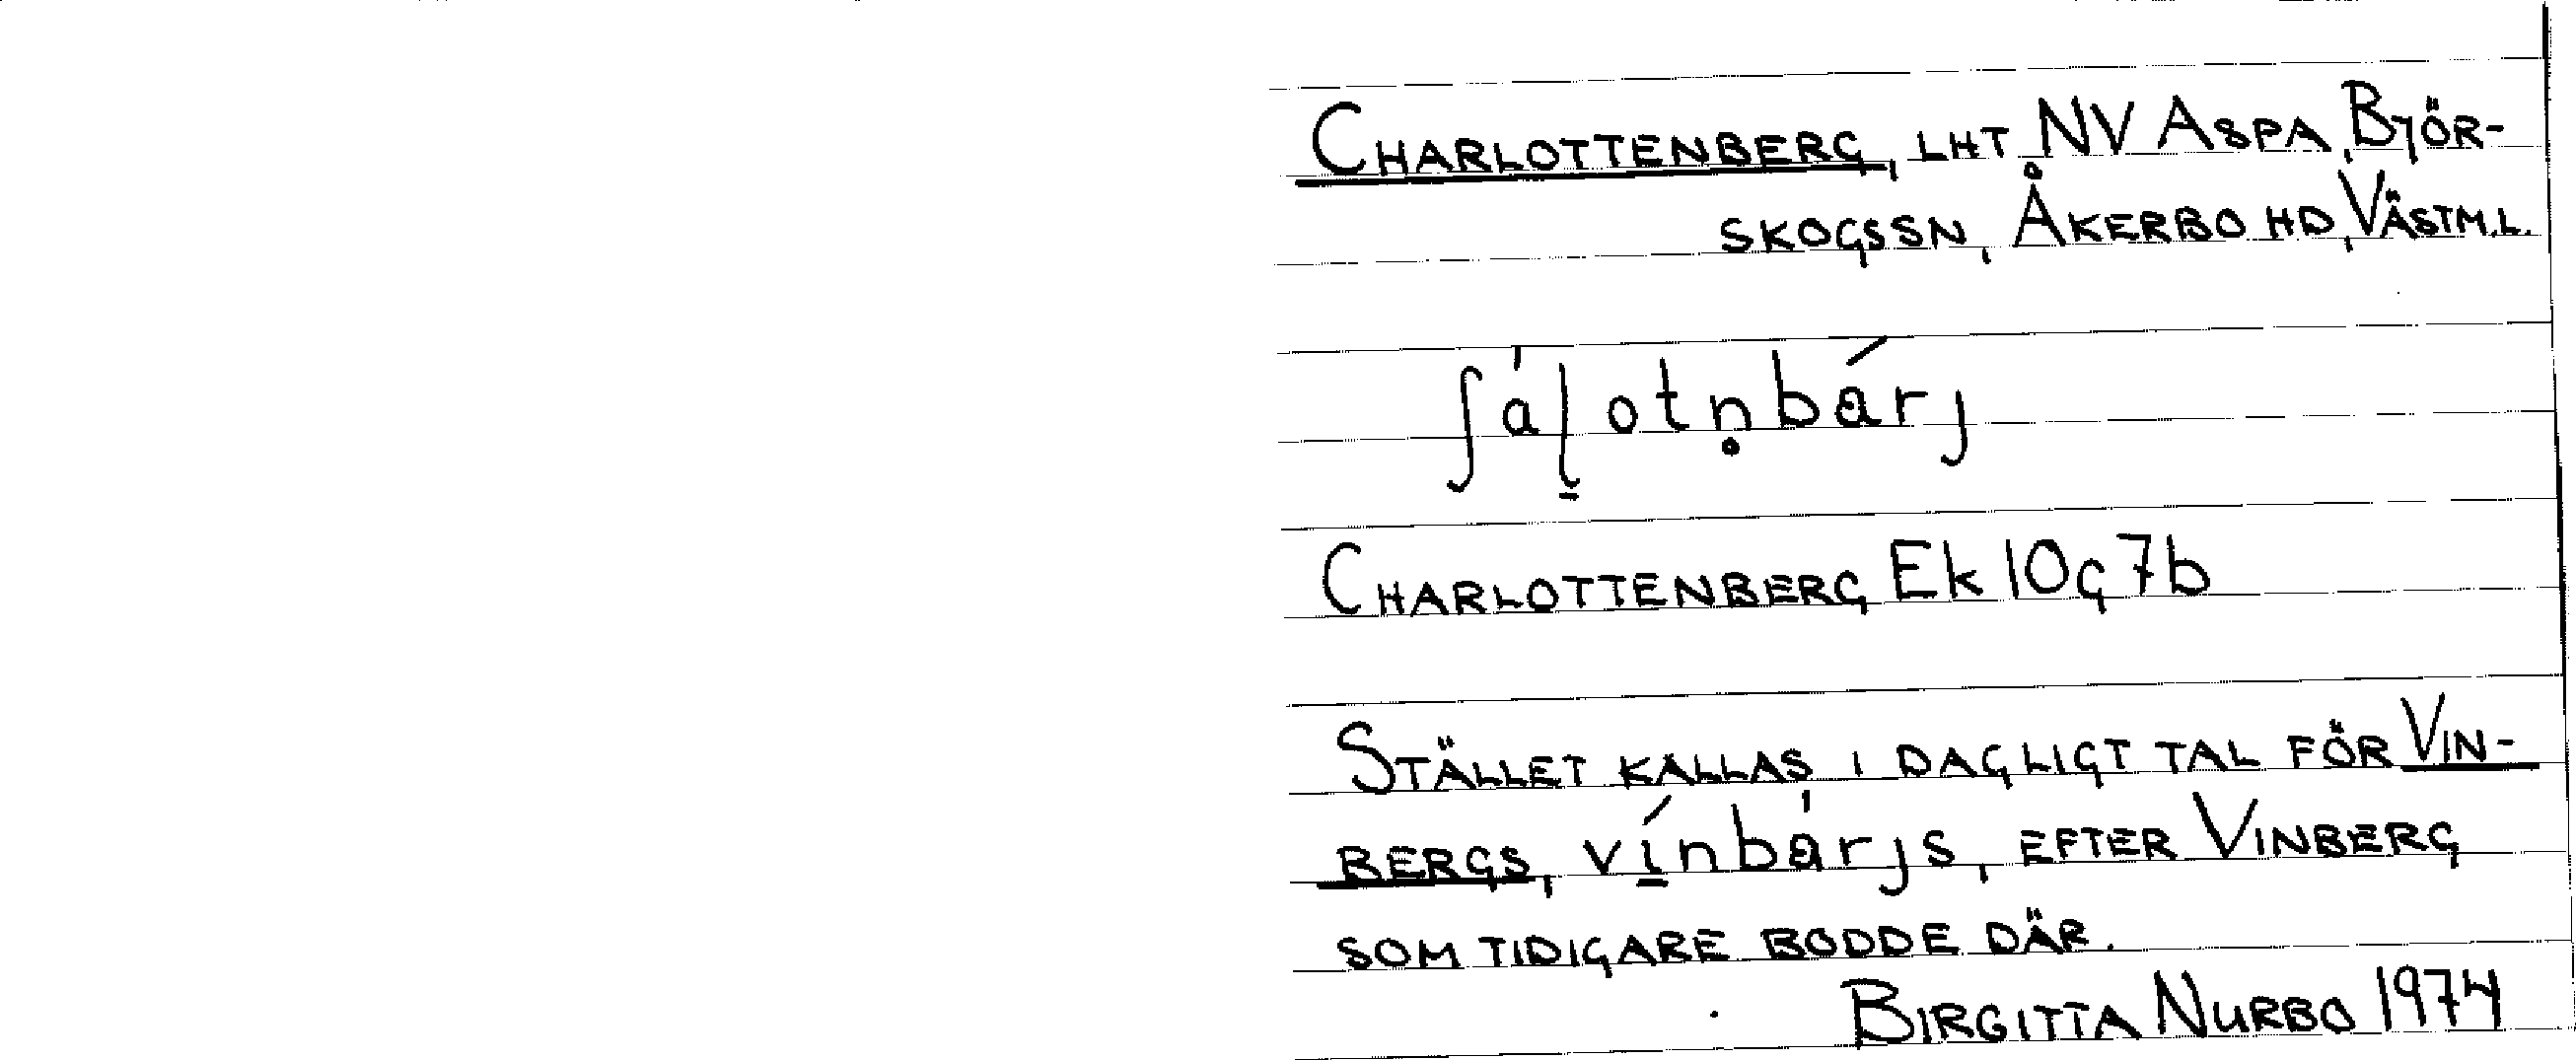 CHARLOTTENBERG, LHT NV ASPA, BJÖR-
SKOGSSN, ÅKERBO HD, VÄSTM.L.
ʃa̍ɭ̠otn̥bárj
CHARLOTTENBERG Ek 10g7b
STÄLLET KALLAS I DAGLIGT TAL FÖR VIN-
BERGS, ví̠nba̍rjs, EFTER VINBERG
SOM TIDIGARE BODDE DÄR.
BIRGITTA NURBO 1974